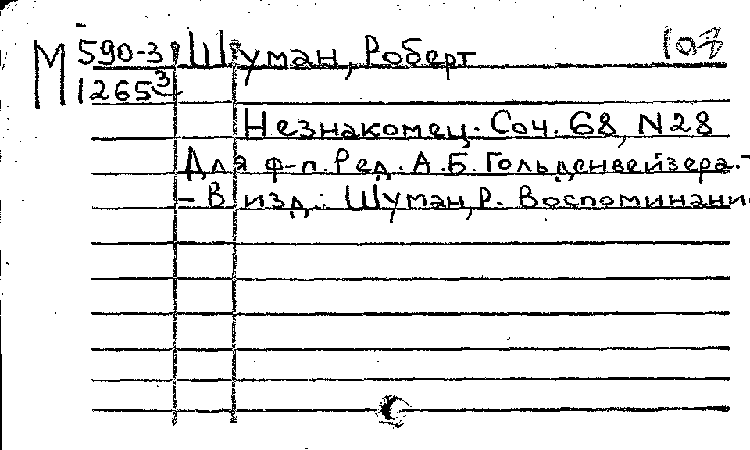 М 590-3 Шуман, Роберт 103
1265³
Незнакомец. Соч. 68, N28
Для ф-п. Ред. А.Б. Гольденвейзера.-
- В изд.: Шуман, Р. Воспоминани